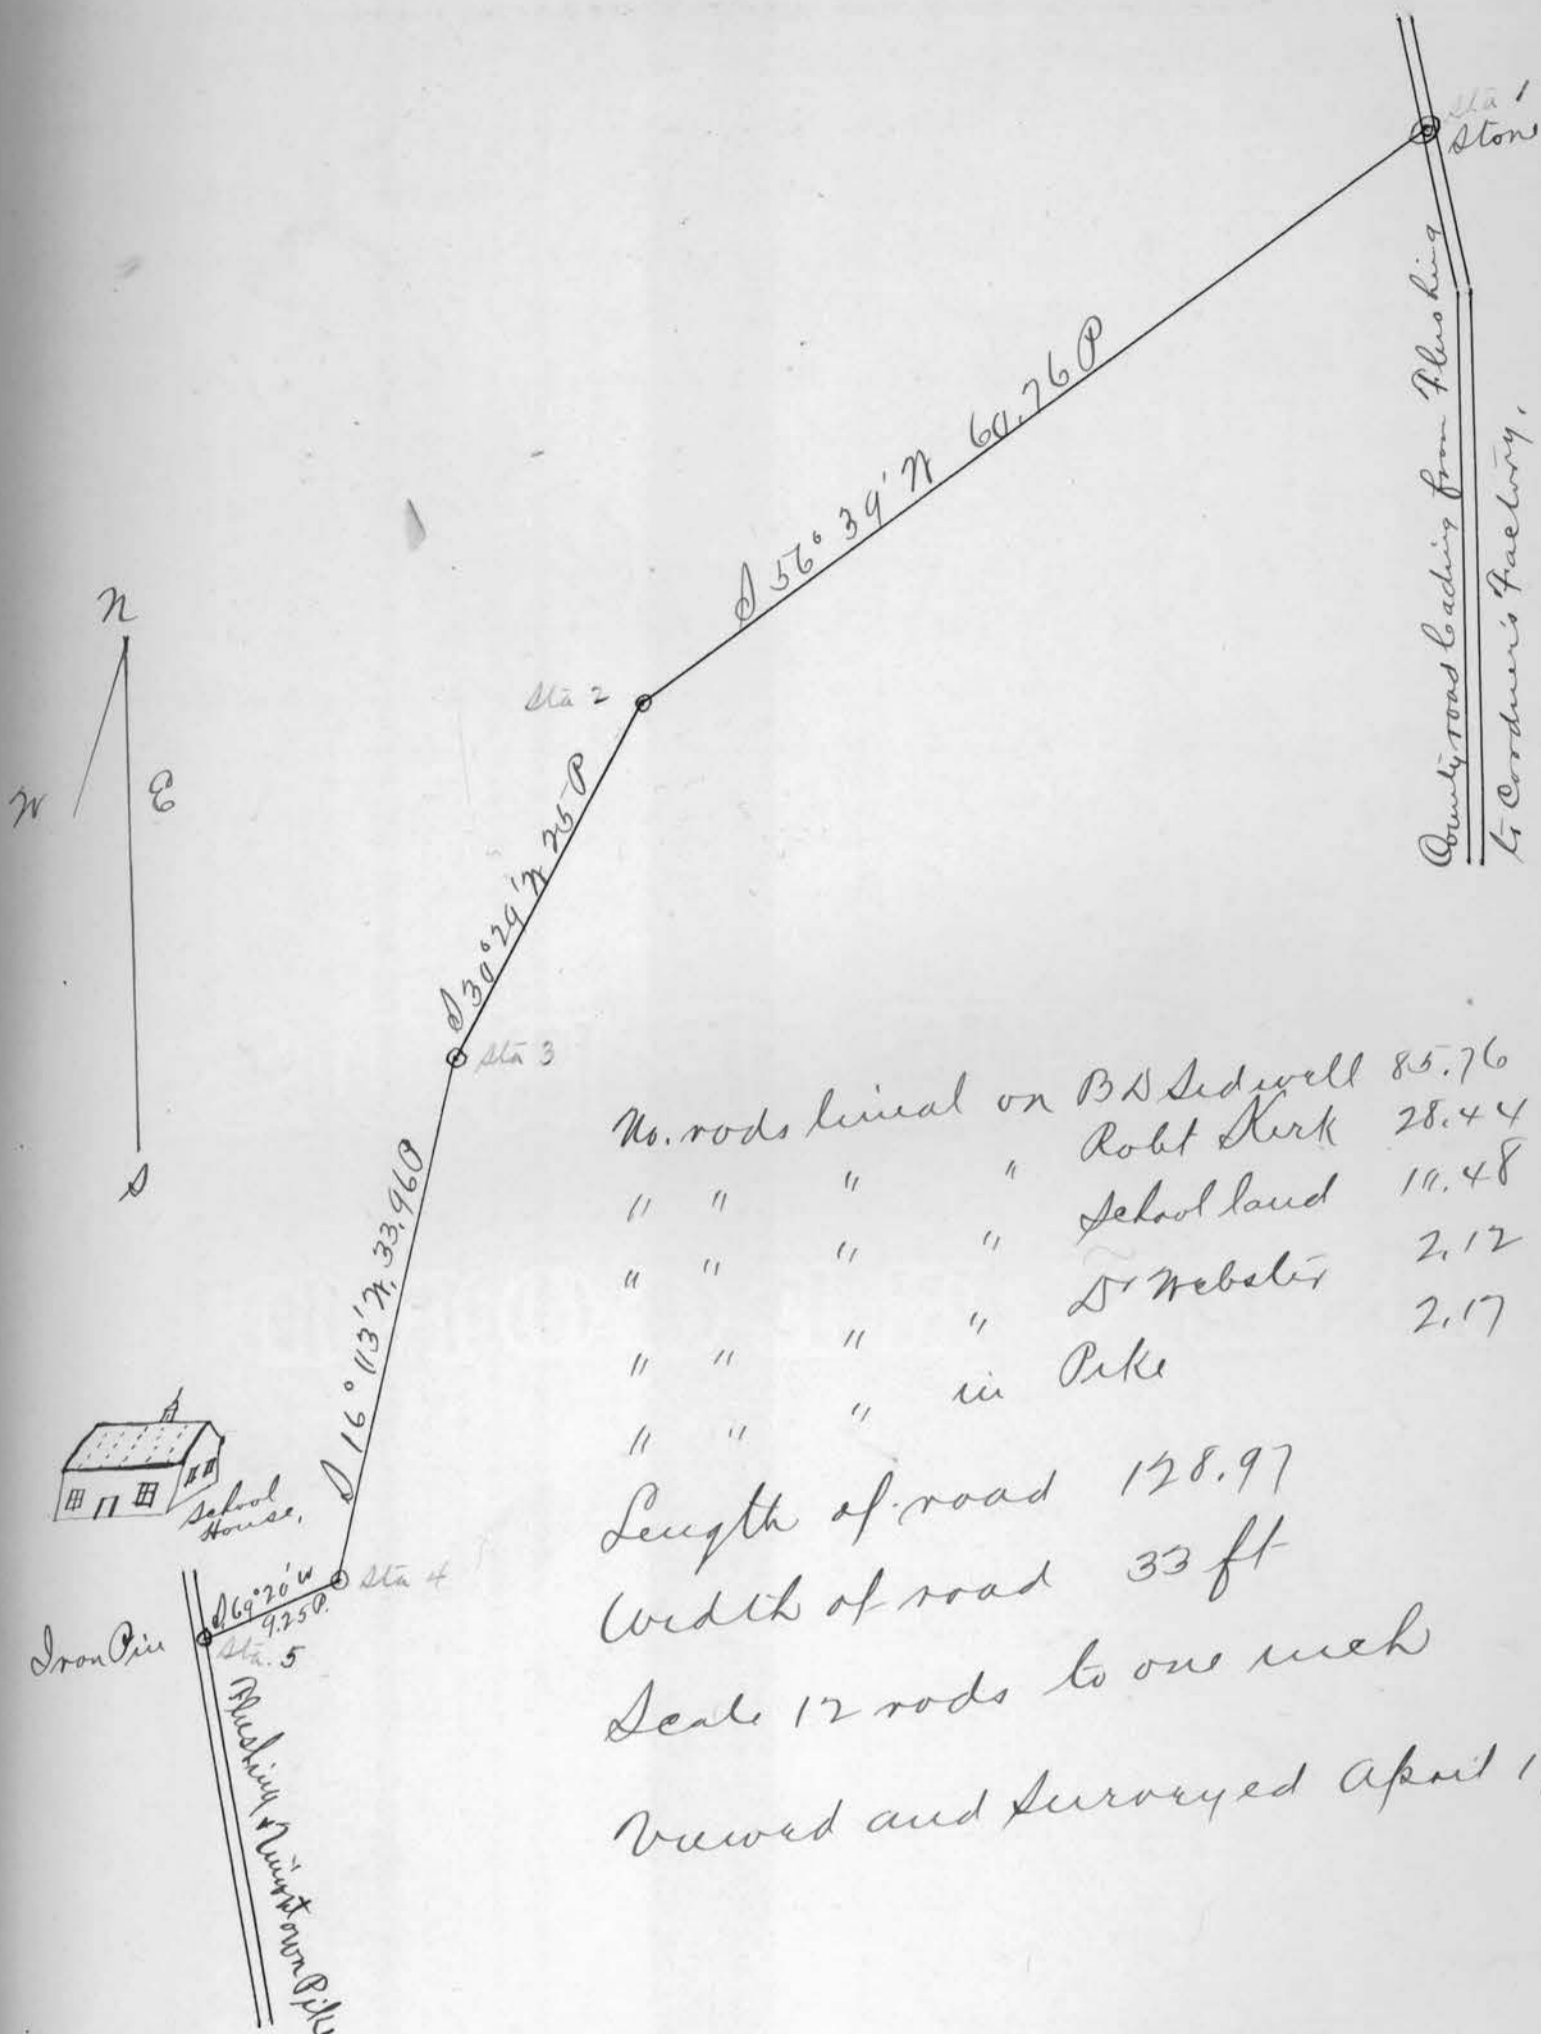 Sta 1
Stone
County road leading from Flushing
to Cordner's Factory.
S 56° 39' W 60.76 P
N
W
E
S
Sta 2
S 30° 29' W 25 P
Sta 3
S 16° 03' W. 33.96 P
School
House.
Sta 4
S 69° 20' W
9.25 P.
Iron Pin
Sta. 5
Flushing & Pike
No. rods lineal on B D Sidwell 85.76
" " " " Robt Kirk 28.44
" " " " School land 10.48
" " " " Dr Webster 2.12
" " " in Pike 2.17
Length of road 128.97
Width of road 33 ft
Scale 12 rods to one inch
Viewed and Surveyed April 1